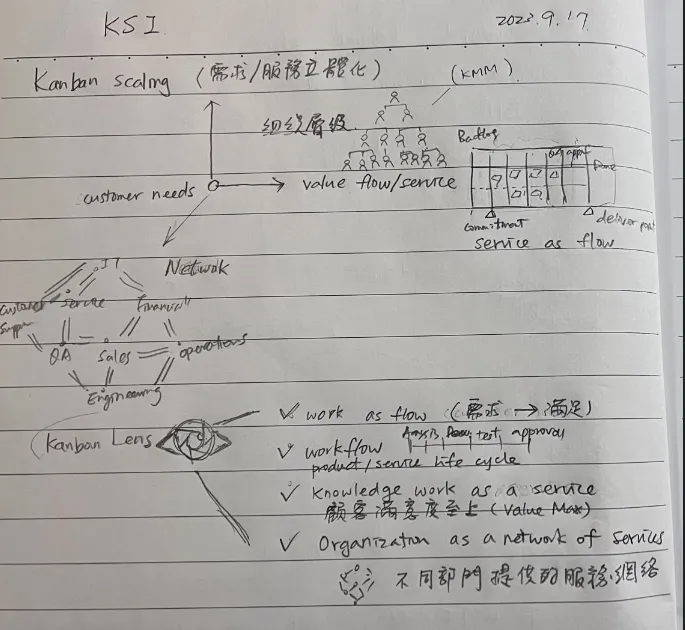 KSI
2023.9.17
Kanban scaling (需求/服務立體化)
(KMM)
組織層級
Backlog
QA
Done
customer needs
value flow/service
commitment
service as flow
IT
Network
Customer
service
QA
Sales
operations
Engineering
Kanban Lens
✓ work as flow (需求 → 滿足)
✓ workflow
test
approval
product/service life cycle
✓ Knowledge work as a service
顧客滿意度至上 (Value Max)
✓ Organization as a network of services
不同部門提供的服務網絡